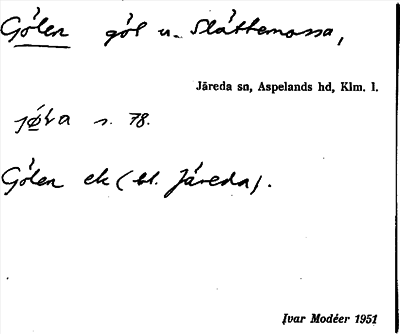 Gölen göl u. Slåttemossa,
Järeda sn, Aspelands hd, Klm. l.
s. 78.
Gölen ek (bl. Järeda).
Ivar Modéer 1951